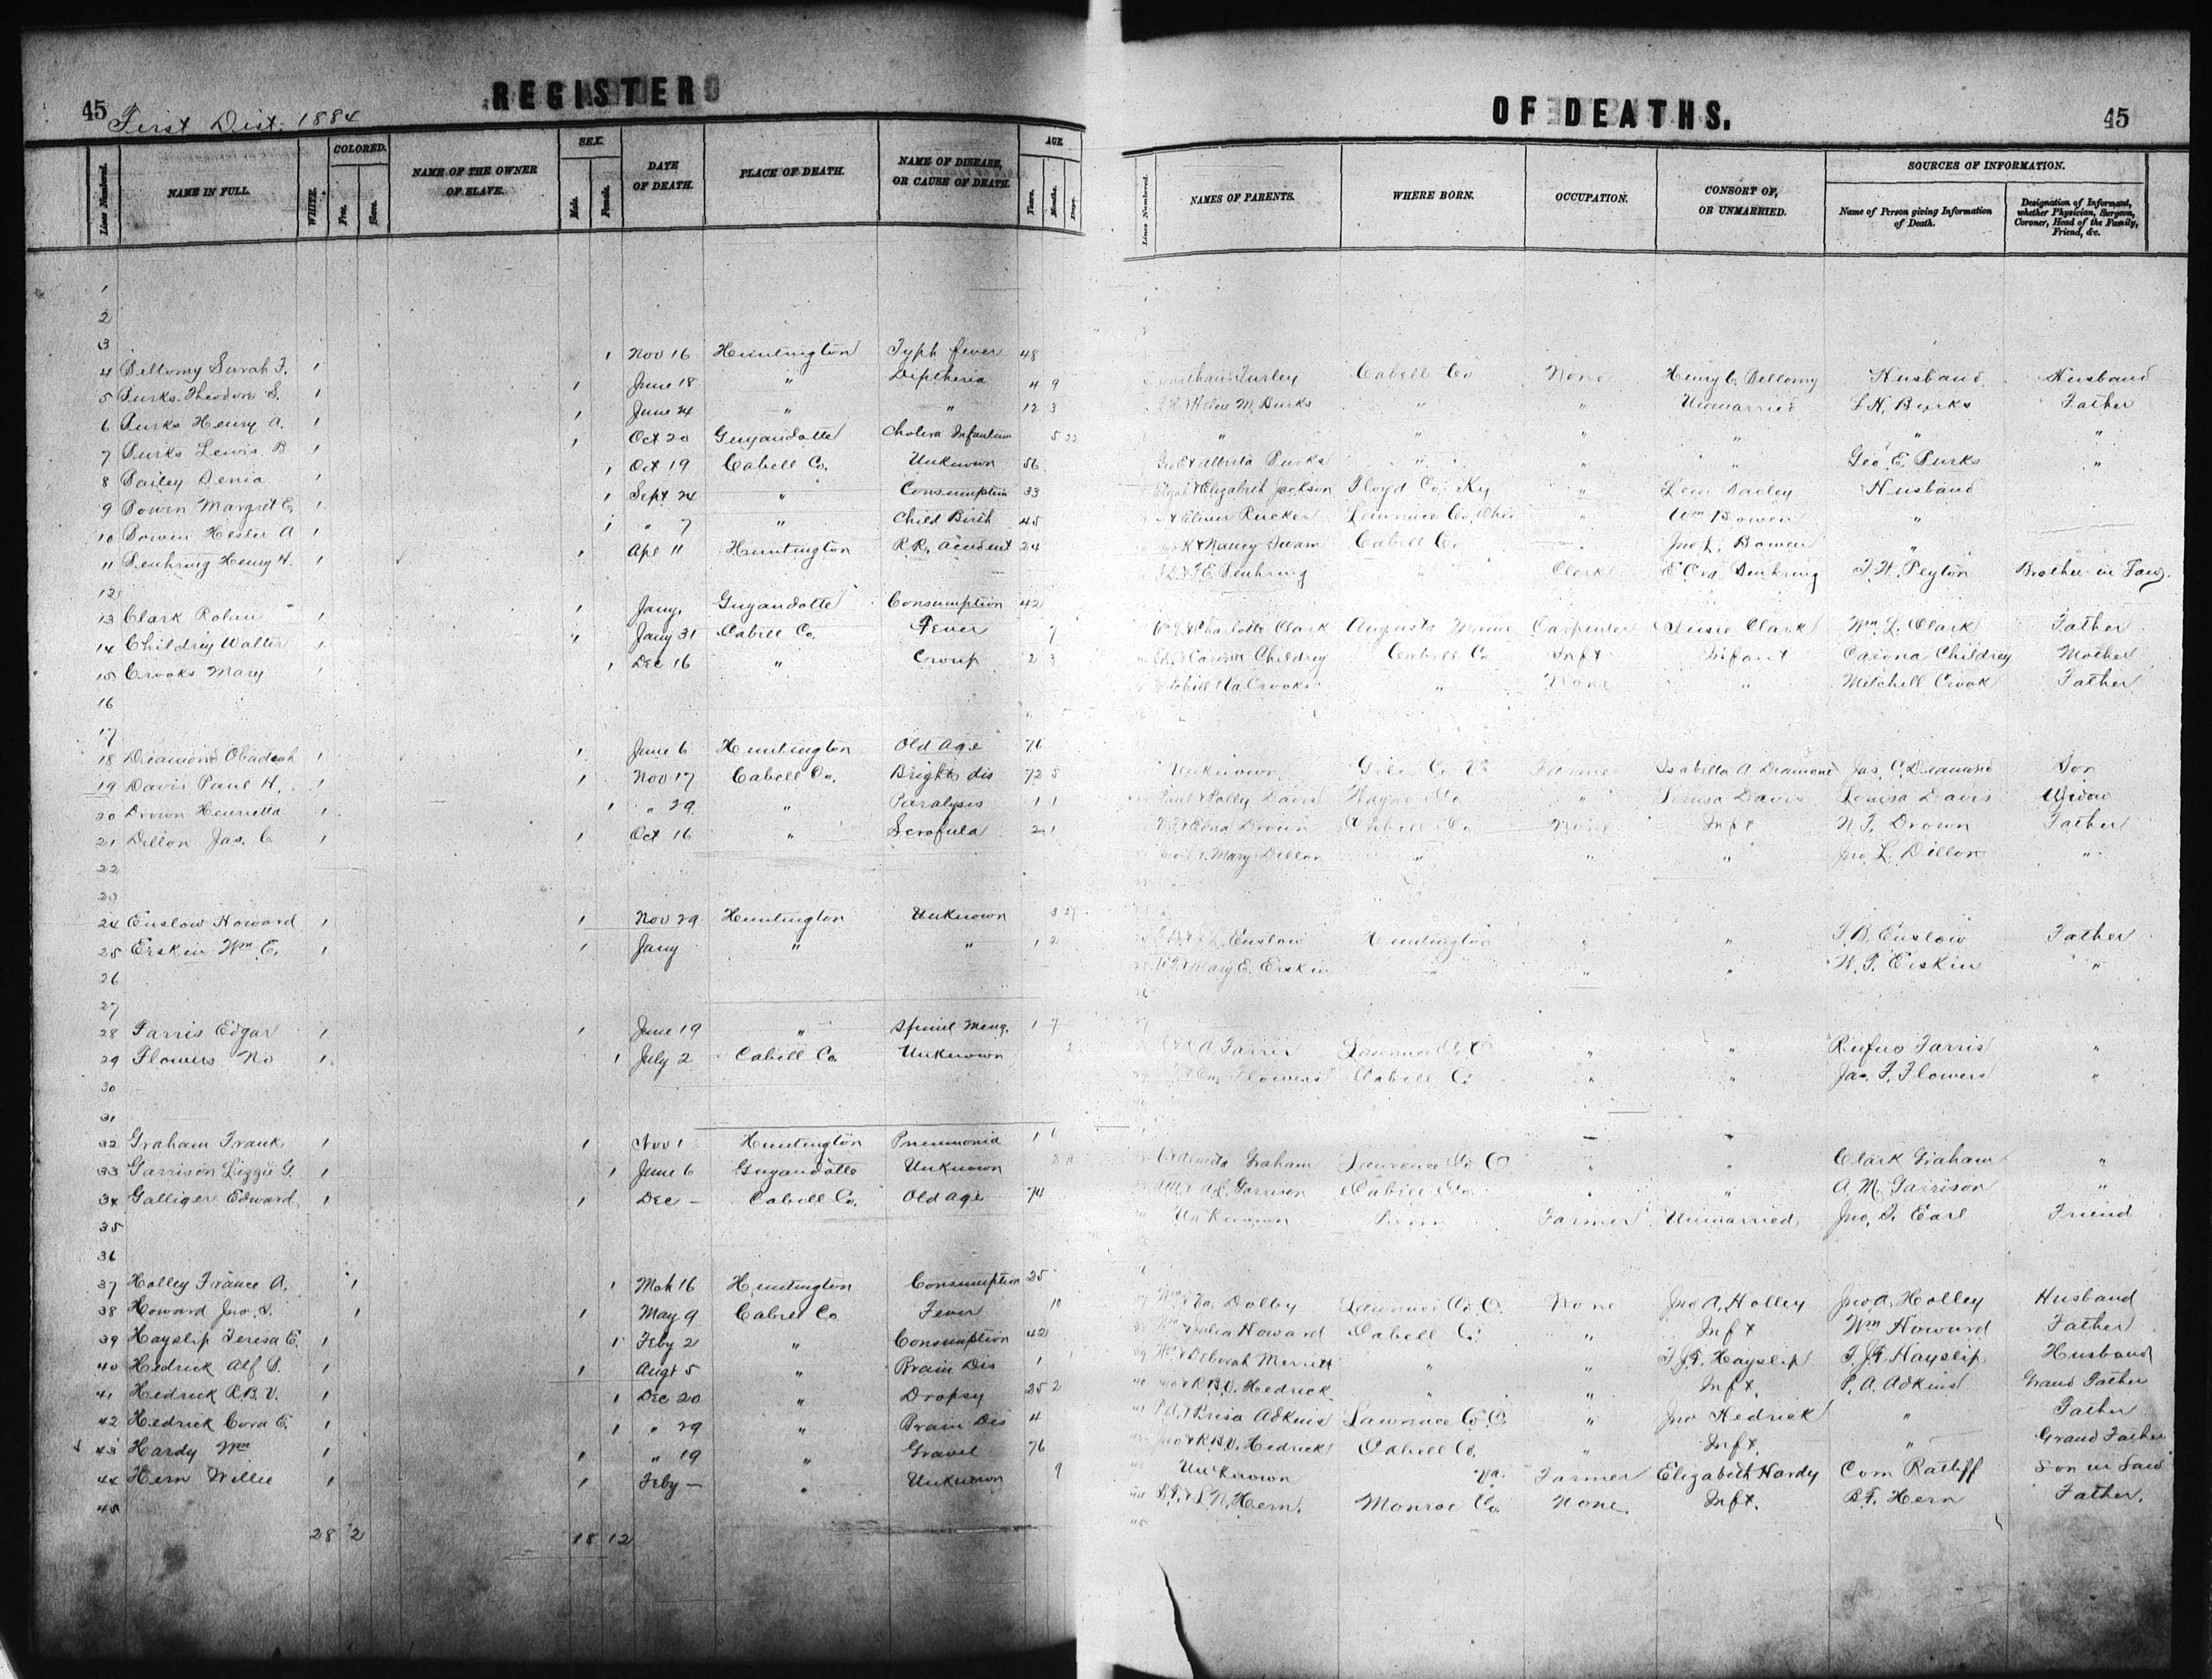 45 First Dist. 1884 REGISTER
OF DEATHS. 45
Lines Numbered. NAME IN FULL. WHITE. COLORED. Free. Slave. NAME OF THE OWNER OF SLAVE. SEX. Male. Female. DATE OF DEATH. PLACE OF DEATH. NAME OF DISEASE, OR CAUSE OF DEATH. AGE Years. Months. Days.
Lines Numbered. NAMES OF PARENTS. WHERE BORN. OCCUPATION. CONSORT OF, OR UNMARRIED. SOURCES OF INFORMATION. Name of Person giving Information of Death. Designation of Informant, whether Physician, Surgeon, Coroner, Head of the Family, Friend, &c.
1
2
3
4 Bellomy Sarah F. 1 1 Nov 16 Huntington Typh fever 48
Turley Cabell Co None Henry C. Bellomy Husband Husband
5 Burks Theodore S. 1 1 June 18 " Diptheria 4 9
Helen M. Burks " " Unmarried L H. Burks Father
6 Burks Henry A. 1 1 June 24 " " 12 3
" " " " " "
7 Burks Lewis B 1 1 Oct 20 Guyandotte Cholera Infantum 5 22
Geo E & Alberta Burks " " " Geo. E. Burks "
8 Bailey Senia 1 1 Oct 19 Cabell Co. Unknown 56
Elijah & Elizabeth Jackson Floyd Co. Ky " Lew Bailey Husband
9 Bowen Margret E. 1 1 Sept 24 " Consumption 33
Rucker Lawrence Co. Ohio " Wm Bowen "
10 Bowen Hester A 1 1 " 7 " Child Birth 45
& Nancy Swam Cabell Co. Jno L. Bowen "
11 Benhring Henry H. 1 1 Apl 11 Huntington R R. accident 24
Benhring " Clerk Benhring T. W. Peyton Brother in Law
12
13 Clark Rolan 1 1 Jany. Guyandotte Consumption 42
& Charlotte Clark Augusta Maine Carpenter Susie Clark Wm. L. Clark Father
14 Childrey Walter 1 " Jany 31 Cabell Co. Fever 7
Childrey Cabell Co Inft Infant Cariona Childrey Mother
15 Crooks Mary 1 1 Dec 16 " Croup 2 3
Crooks " None " Mitchell Crook Father
16
17
18 Diamond Obadeah 1 1 June 6 Huntington Old age 76
Unknown Giles Co Va Farmer Isabella A Diamond Jas. C. Diamond Son
19 Davis Paul H. 1 1 Nov 17 Cabell Co. Brights dis 72 5
Paul & Polly Davis Wayne Co " Louisa Davis Louisa Davis Widow
20 Drown Henrietta 1 1 " 29 " Paralysis 1 1
& Edna Drown Cabell Co None Inft N. F. Drown Father
21 Dillon Jas. C 1 1 Oct 16 " Scrofula 2 1
& Mary Dillon " " " Jno. L. Dillon "
22
23
24 Enslow Howard 1 1 Nov 29 Huntington Unknown 3 27
Enslow Huntington " " F. B. Enslow Father
25 Erskin Wm E. 1 1 Jany " " 1 2
& Mary E. Erskin " " " W. T. Erskin "
26
27
28 Farris Edgar 1 1 June 19 " Spinil Meng. 1 7
A. Farris Lawrence Co O " " Rufus Farris "
29 Flowers No 1 1 July 2 Cabell Co. Unknown 2
Flowers Cabell Co " " Jas. F. Flowers "
30
31
32 Graham Frank 1 1 Nov 1 Huntington Pneumonia 1 6
Graham Lawrence Co O " " Clark Graham "
33 Garrison Lizzie G. 1 1 June 6 Guyandotte Unknown
Garrison Cabell Co " " A. M. Garrison "
34 Galliger Edward 1 1 Dec - Cabell Co. Old age 74
Unknown Farmer Unmarried Jno. T. Earl Friend
35
36
37 Holley France A. 1 1 Mch 16 Huntington Consumption 25
Dolby Lawrence Co O. None Jno A. Holley Jno. A. Holley Husband
38 Howard Jno. S. 1 1 May 9 Cabell Co Fever 10
& Julia Howard Cabell Co " Inft Wm Howard Father
39 Hayslip Teresa E. 1 1 Feby 2 " Consumption 42
Wm & Deborah Merritt " " T. J. Hayslip T. J. Hayslip Husband
40 Hedrick Alf S. 1 1 Augt 5 " Brain Dis 1
Jno & R. B. V. Hedrick " " Inft. P. A. Adkins Grand Father
41 Hedrick R. B. V. 1 1 Dec 20 " Dropsy 25 2
P A. & Brisa Adkins Lawrence Co. O. " Jno Hedrick " Father
42 Hedrick Cora E. 1 1 " 29 " Brain Dis 4
Jno & R. B. V. Hedrick Cabell Co. " Inft. " Grand Father
43 Hardy Wm 1 1 " 19 " Gravel 76
Unknown Va. Farmer Elizabeth Hardy Com Ratliff Son in Law
44 Hern Willie 1 1 Feby - " Unknown 9
B. F. & L. N. Hern. Monroe Co None Inft. B. F. Hern Father.
45
28 2 18 12